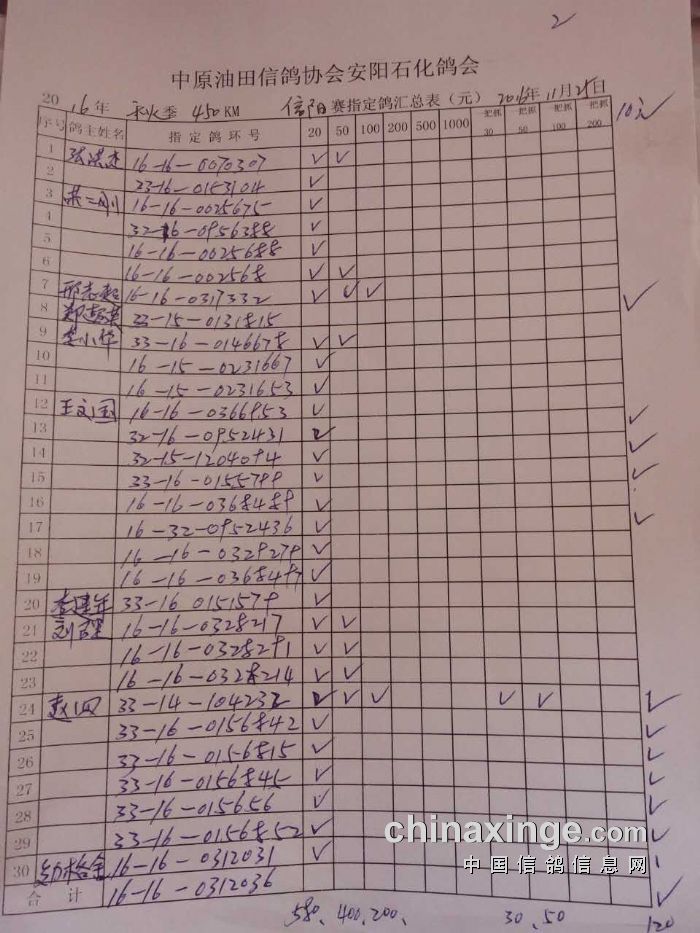 2
中原油田信鸽协会安阳石化鸽会
2016年 秋季 450KM 信阳赛指定鸽汇总表（元） 2016年11月21日
序号 鸽主姓名 指定鸽环号 20 50 100 200 500 1000 一把抓30 一把抓50 一把抓100 一把抓200 10元
1 16-16-0070307 ✓ ✓
2 23-16-0153104 ✓
3 16-16-0025675 ✓
4 32-16-0956388 ✓
5 16-16-0025688 ✓
6 16-16-002568 ✓ ✓
7 16-16-0317332 ✓ ✓ ✓ ✓
8 33-15-0131815
9 李小华 33-16-0146678 ✓ ✓
10 16-15-0231667 ✓
11 16-15-0231653 ✓
12 王文国 16-16-0366953 ✓ ✓
13 32-16-0952431 ✓ ✓
14 32-15-1204094 ✓ ✓
15 33-16-0155799 ✓
16 16-16-0368489 ✓
17 16-32-0952436 ✓ ✓
18 16-16-0329279 ✓
19 16-16-0368497 ✓
20 33-16 0151579 ✓
21 16-16-0328217 ✓ ✓
22 16-16-0328291 ✓ ✓
23 16-16-0328214 ✓ ✓
24 赵四 33-14-104232 ✓ ✓ ✓ ✓ ✓ ✓
25 33-16-0156842 ✓ ✓
26 33-16-0156815 ✓ ✓
27 33-16-0156845 ✓ ✓
28 33-16-015656 ✓ ✓
29 33-16-0156852 ✓ ✓
30 16-16-0312031 ✓
合计 16-16-0312036 ✓
580、400、200、 30、50 120
chinaxinge.com
中国信鸽信息网